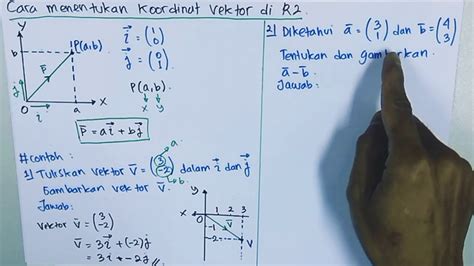 Cara menentukan Koordinat Vektor di R2.
y
b
P(a,b)
p⃗
j⃗
O
i⃗
a
x
i⃗ = (1 0)
j⃗ = (0 1)
P(a,b)
x y
p⃗ = a i⃗ + b j⃗
#contoh :
1) Tuliskan vektor v⃗ = (3 -2) dalam i⃗ dan j⃗
a.
b.
Gambarkan vektor v⃗.
Jawab:
Vektor v⃗ = (3 -2)
v⃗ = 3i⃗ + (-2)j⃗
= 3i⃗ - 2j⃗
x
1 2 3
-1
-2
v⃗
V
y
2) Diketahui a̅ = (3 1) dan b̅ = (4 3)
Tentukan dan gambarkan
a̅ - b̅.
Jawab: